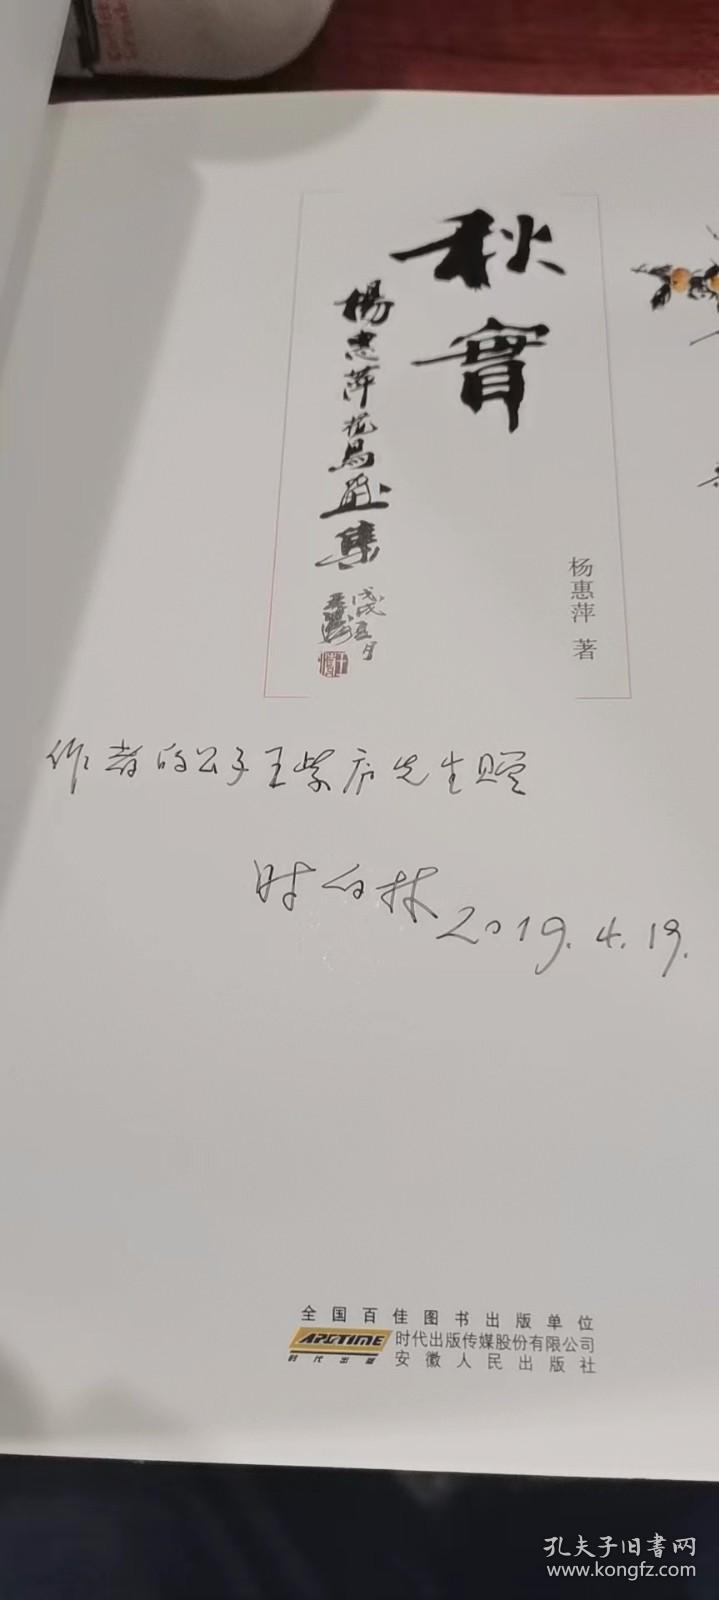 秋實
楊惠萍花鳥画集
戊戌五月
杨惠萍 著
作者的公子王紫启先生赠
时白林
2019.4.19.
全国百佳图书出版单位
ARCTIME
时代出版
时代出版传媒股份有限公司
安徽人民出版社
孔夫子旧书网
www.kongfz.com